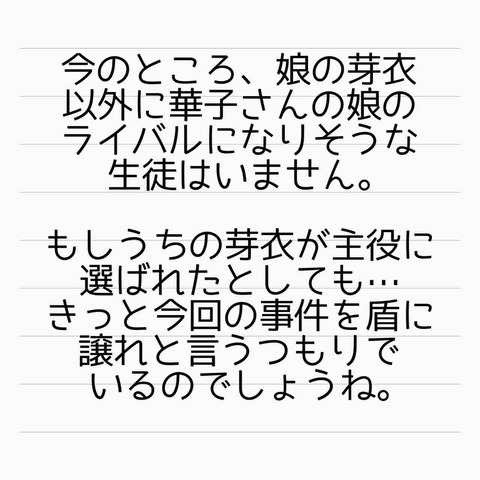 今のところ、娘の芽衣
以外に華子さんの娘の
ライバルになりそうな
生徒はいません。
もしうちの芽衣が主役に
選ばれたとしても…
きっと今回の事件を盾に
譲れと言うつもりで
いるのでしょうね。